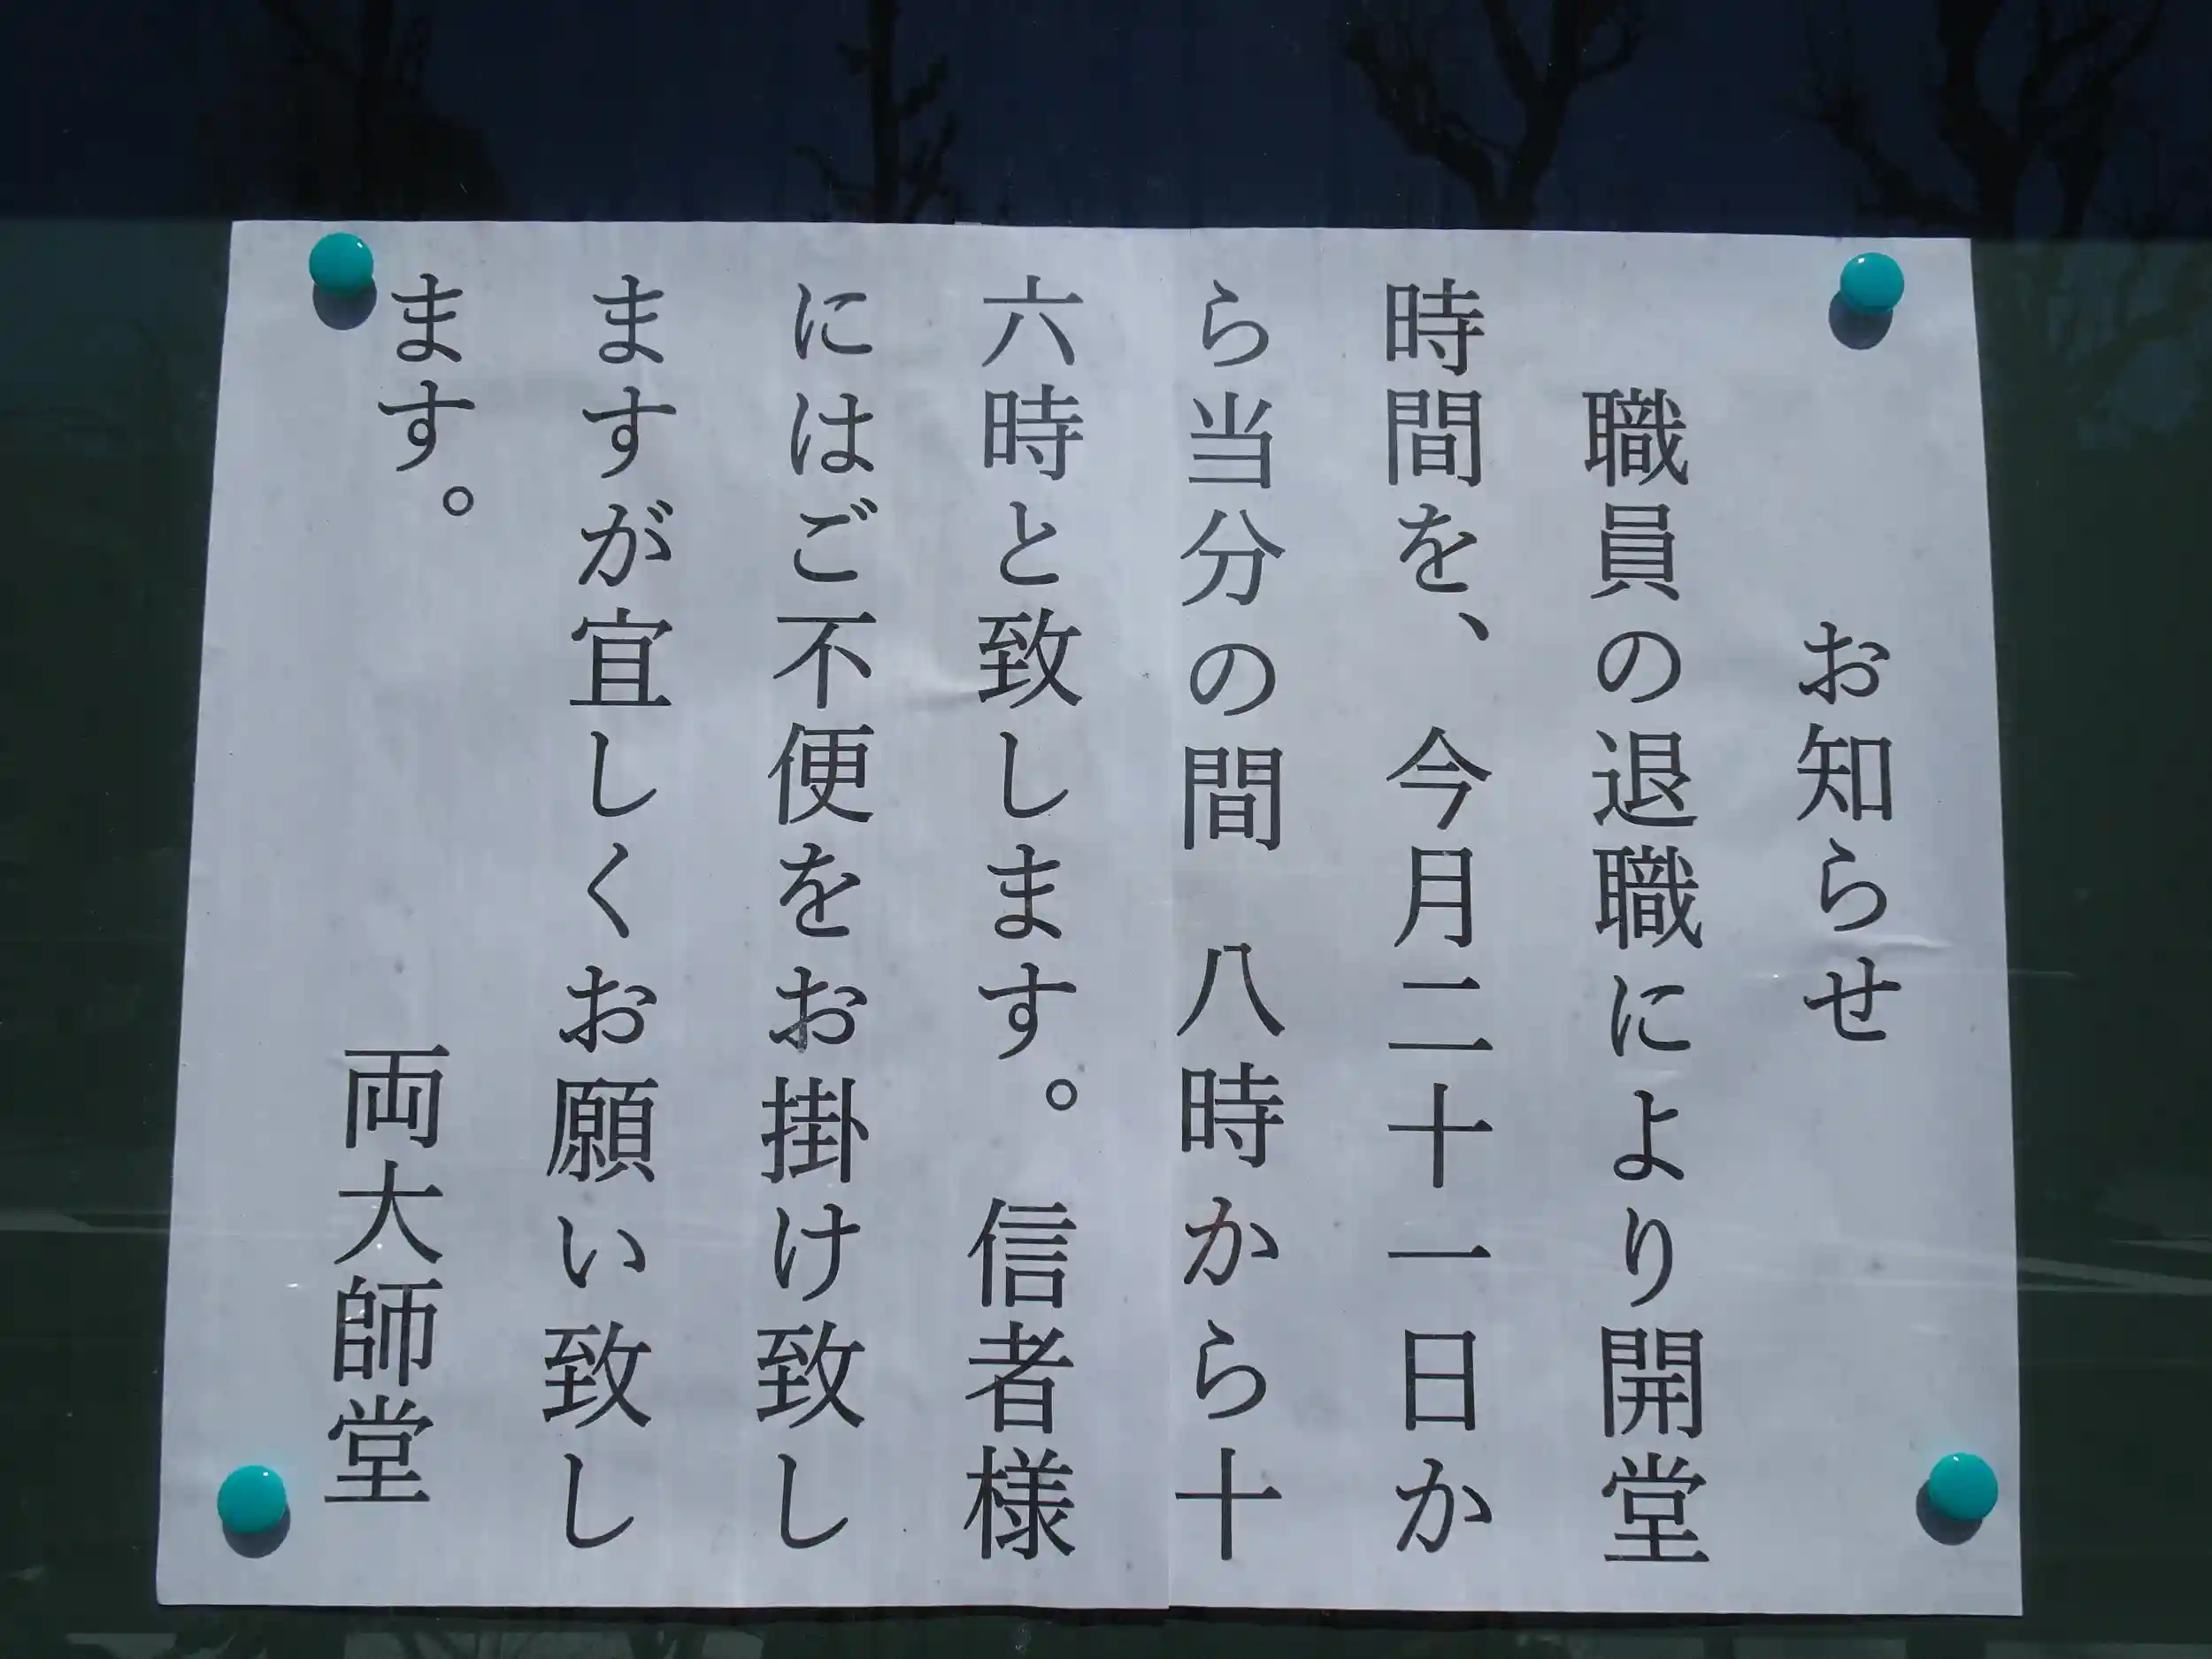 お知らせ
職員の退職により開堂
時間を、今月二十一日か
ら当分の間 八時から十
六時と致します。信者様
にはご不便をお掛け致し
ますが宜しくお願い致し
ます。
両大師堂